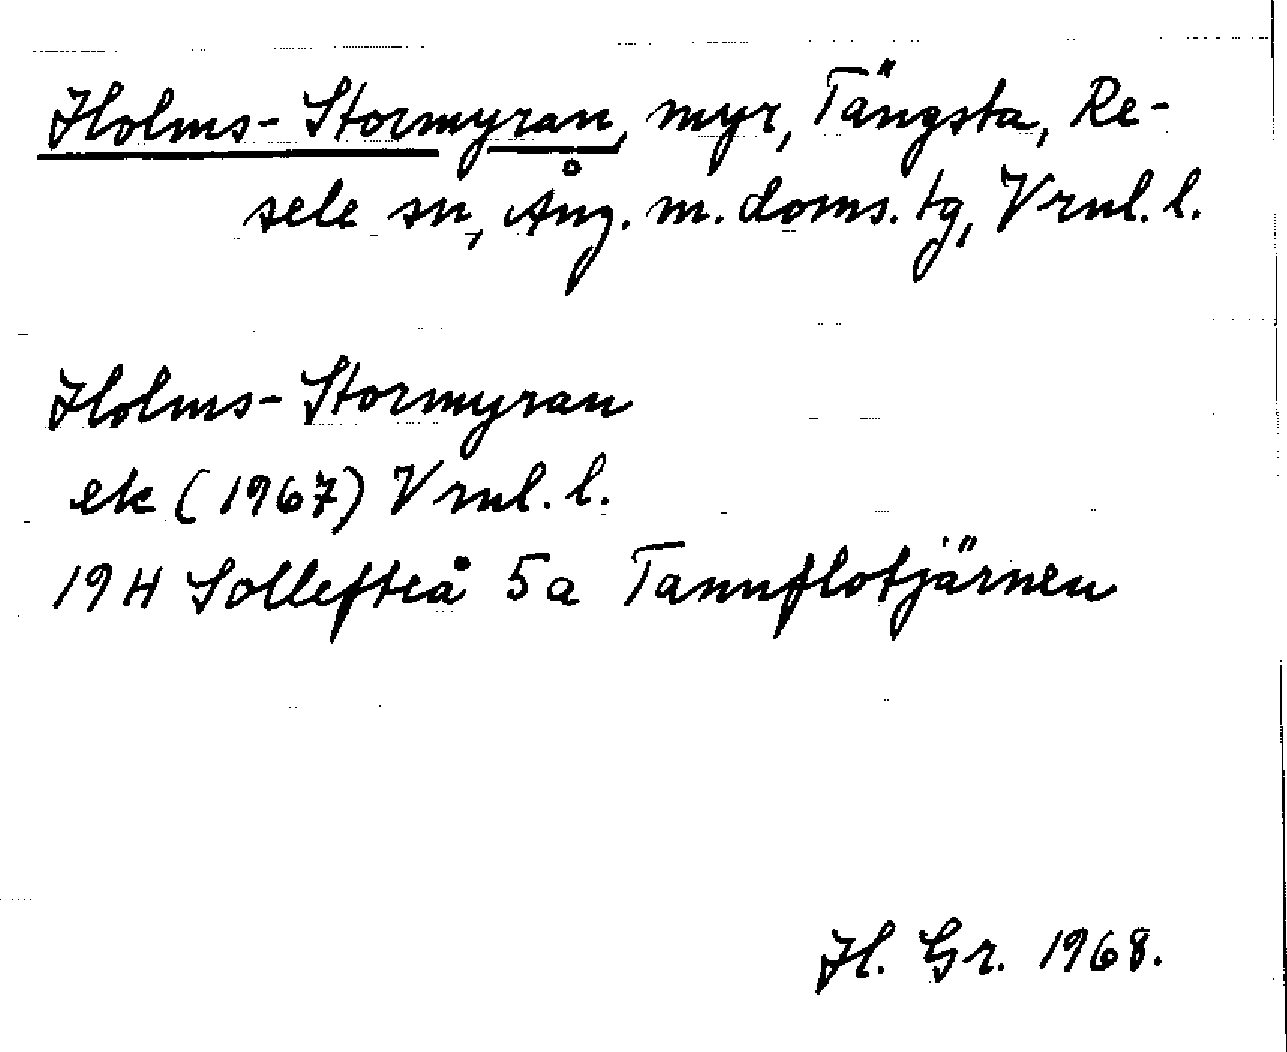 Holms-Stormyran, myr, Tängsta, Re-
sele sn, Ång. m. doms. tg, Vrnl. l.
Holms-Stormyran
ek (1967) Vrnl. l.
19H Sollefteå 5a Tannflotjärnen
H. Gr. 1968.